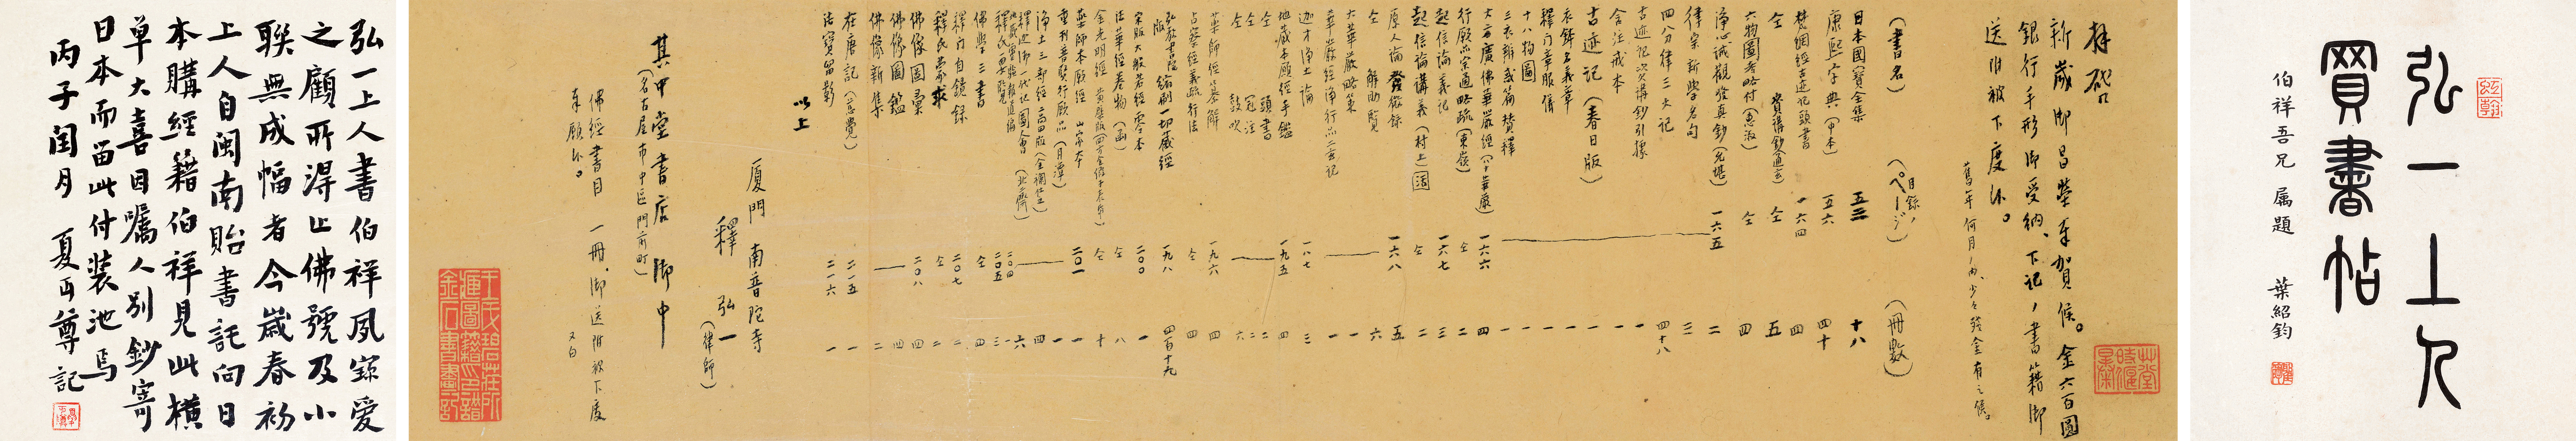 弘一上人
買書帖
伯祥吾兄屬題
葉紹鈞
拜啓
新歲御昌榮奉賀候。金六百圓
銀行手形御受納、下記ノ書籍御
送附被下度候。
(書名)
(目錄ノページ)
(冊數)
日本國寶全集 五三 十八
康熙字典(中本) 五六 四十
梵網經古迹記頭書 一六四 四
仝 五
六物圖考略付(惠淑) 仝 四
淨心誡觀發真鈔(允堪) 一六五 二
律宗新學名句 三
四分律三大記 四十八
古迹記次講鈔引據 一
舍注戒本 一
古迹記(春日版) 一
衣鉢名義章 一
釋門章服儀 一
十八物圖 一
三衣辨惑篇贊釋 一
大方廣佛華嚴經(八十華嚴) 一六六 四
行願品宗通略疏(東嶺) 仝 二
起信論義記 一六七 三
起信論講義(村上) 仝 二
原人論發微錄 一六八 五
仝 解助覽 六
大華嚴略策 一
華嚴經淨行品二玄記 一
迦才淨土論 一八七 三
地藏本願經手鑑 一九五 四
仝 頭書 二
仝 冠注 二
仝 鼓吹 六
藥師經纂解 一九六 四
占察經義疏行法 仝 四
弘教書院版縮刷一切藏經 一九八 四百十九
宋版大般若經零本 二〇〇 一
法華經卷物 仝 八
藥師本願經 山家本 一
重刊普賢行願品(月潭) 二〇一 一
淨土三部經 四
佛學三書 仝 四
釋門自鏡錄 二〇七 二
釋氏蒙求 仝 二
佛像圖彙 二〇八 四
佛像圖鑑 四
佛像新集 二
在唐記(慈覺) 二一五 一
法寶留影 二一六 一
以上
廈門南普陀寺
釋弘一(律師)
其中堂書店御中
(名古屋市中區門前町)
佛經書目一冊、御送附被下度
奉願候。 又白
弘一上人書伯祥夙窾愛
之顧所得止佛號及小
聯無成幅者今歲春初
上人自閩南貽書託向日
本購經籍伯祥見此橫
單大喜因囑人別鈔寄
日本而留此付裝池焉
丙子閏月 夏丏尊記